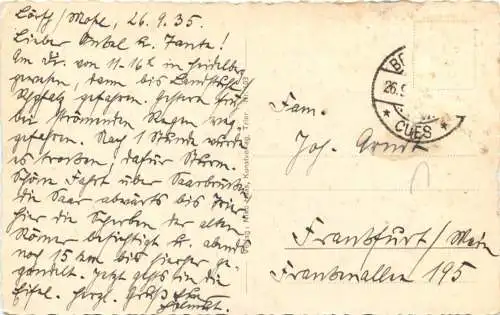 Lörsch/Mosel, 26.9.35.
Lieber Onkel u. Tante!
Am Di. von 11-14h in Heidelberg
gewesen, dann bis Landstuhl
Rhpfalz gefahren. Gestern früh
bei strömendem Regen weg
gefahren. Nach 1 Stunde wurde
es trocken, dafür Sturm.
Schöne Fahrt über Saarbrücken
die Saar abwärts bis Trier
hier die Scherben der alten
Römer besichtigt u. abends
noch 15 km bis hierher ge-
gondelt. Jetzt gehts in die
Eifel. Herzl. Grüße
Helmut.
Kunstverlag, Trier
BE
26.9
CUES
Fam.
Joh. Arndt
Frankfurt/Main
Frankenallee 195